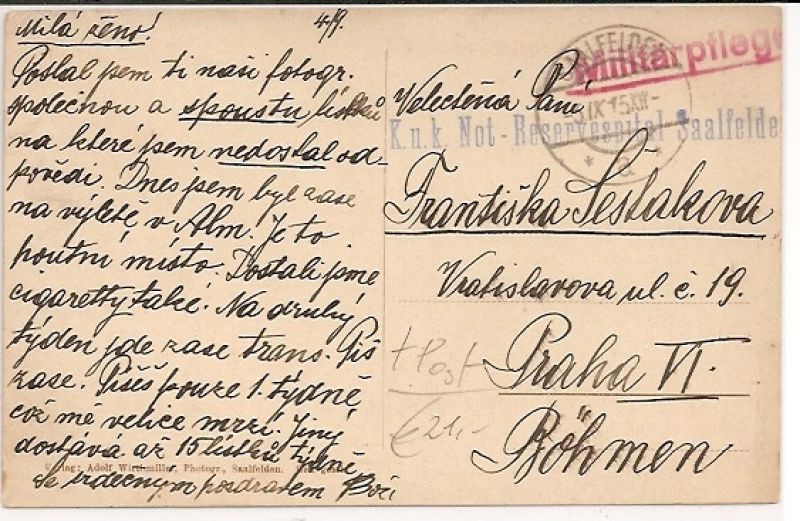 4/9.
Milá ženo!
Poslal jsem ti naši fotogr.
společnou a spoustu lístků
na které jsem nedostal od-
povědi. Dnes jsem byl zase
na výletě v Alm. Je to
poutní místo. Dostali jsme
cigaretty také. Na druhý
týden jde zase trans. Piš
zase. Píšeš pouze 1. týdně
což mě velice mrzí. Jiný
dostává až 15 lístků týdně
Verlag: Adolf Wirthmiller, Photogr., Saalfelden.
Se srdečným pozdravem
SAALFELDEN
Militärpflege
Velectěná Paní
K.u.k. Not-Reservespital Saalfelden
Františka Šestakova
Vratislavova ul. č. 19.
+ Post
Praha VI.
€ 21,-
Böhmen